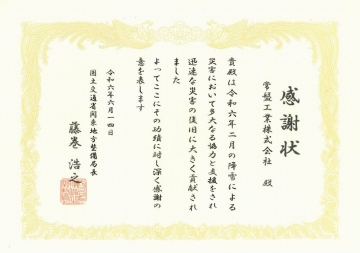 感謝状
常盤工業株式会社 殿
貴殿は令和六年二月の降雪による
災害において多大なる協力と支援をされ
迅速な災害の復旧に大きく貢献され
ました
よってここにその功績に対し深く感謝の
意を表します
令和六年六月一四日
国土交通省関東地方整備局長
藤巻浩之